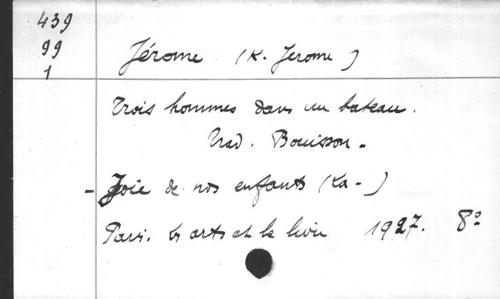 439
99
1
Jérome (K. Jerome)
Trois hommes dans un bateau.
Trad. Bouisson.
- Joie de nos enfants (La-)
Paris. Les arts et le livre 1927. 8°